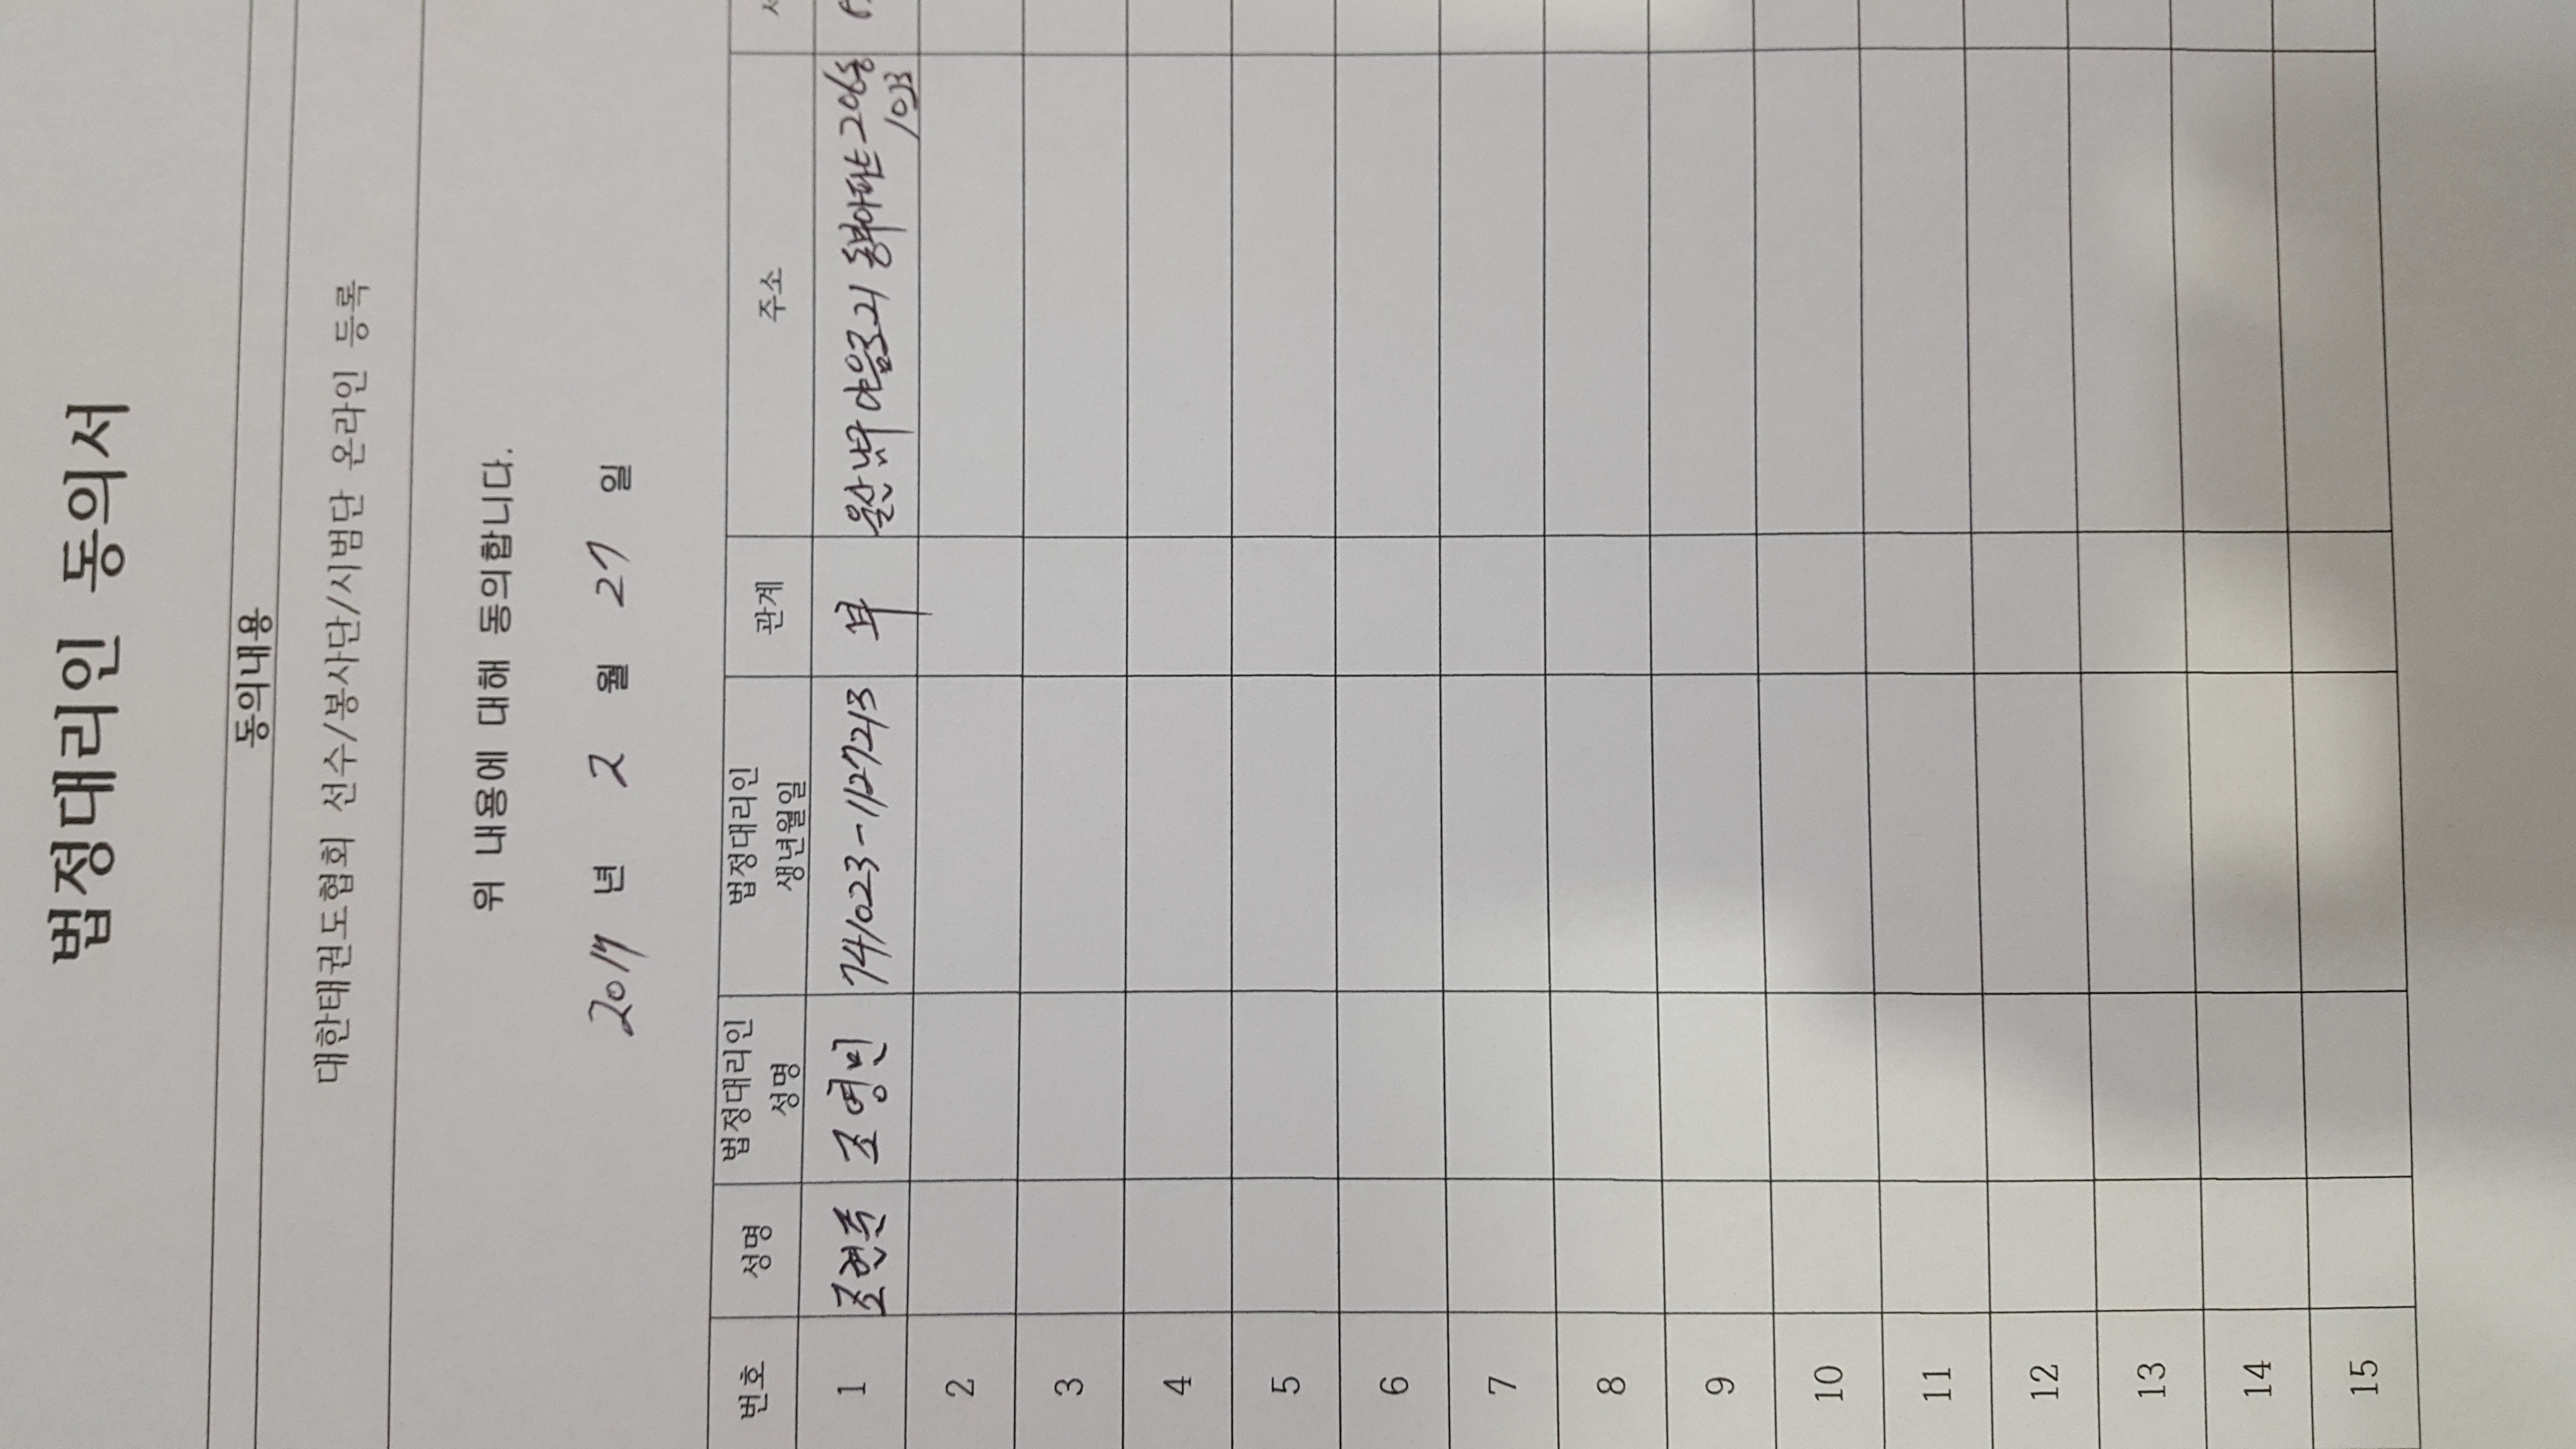 법정대리인 동의서
동의내용
대한태권도협회 선수/봉사단/시범단 온라인 등록
위 내용에 대해 동의합니다.
2017 년 2 월 27 일
번호 성명 법정대리인 성명 법정대리인 생년월일 관계 주소
1 조현준 조영민 741023-1127213 부 울산 남구 야음3리 동부아파트 206동
2
3
4
5
6
7
8
9
10
11
12
13
14
15